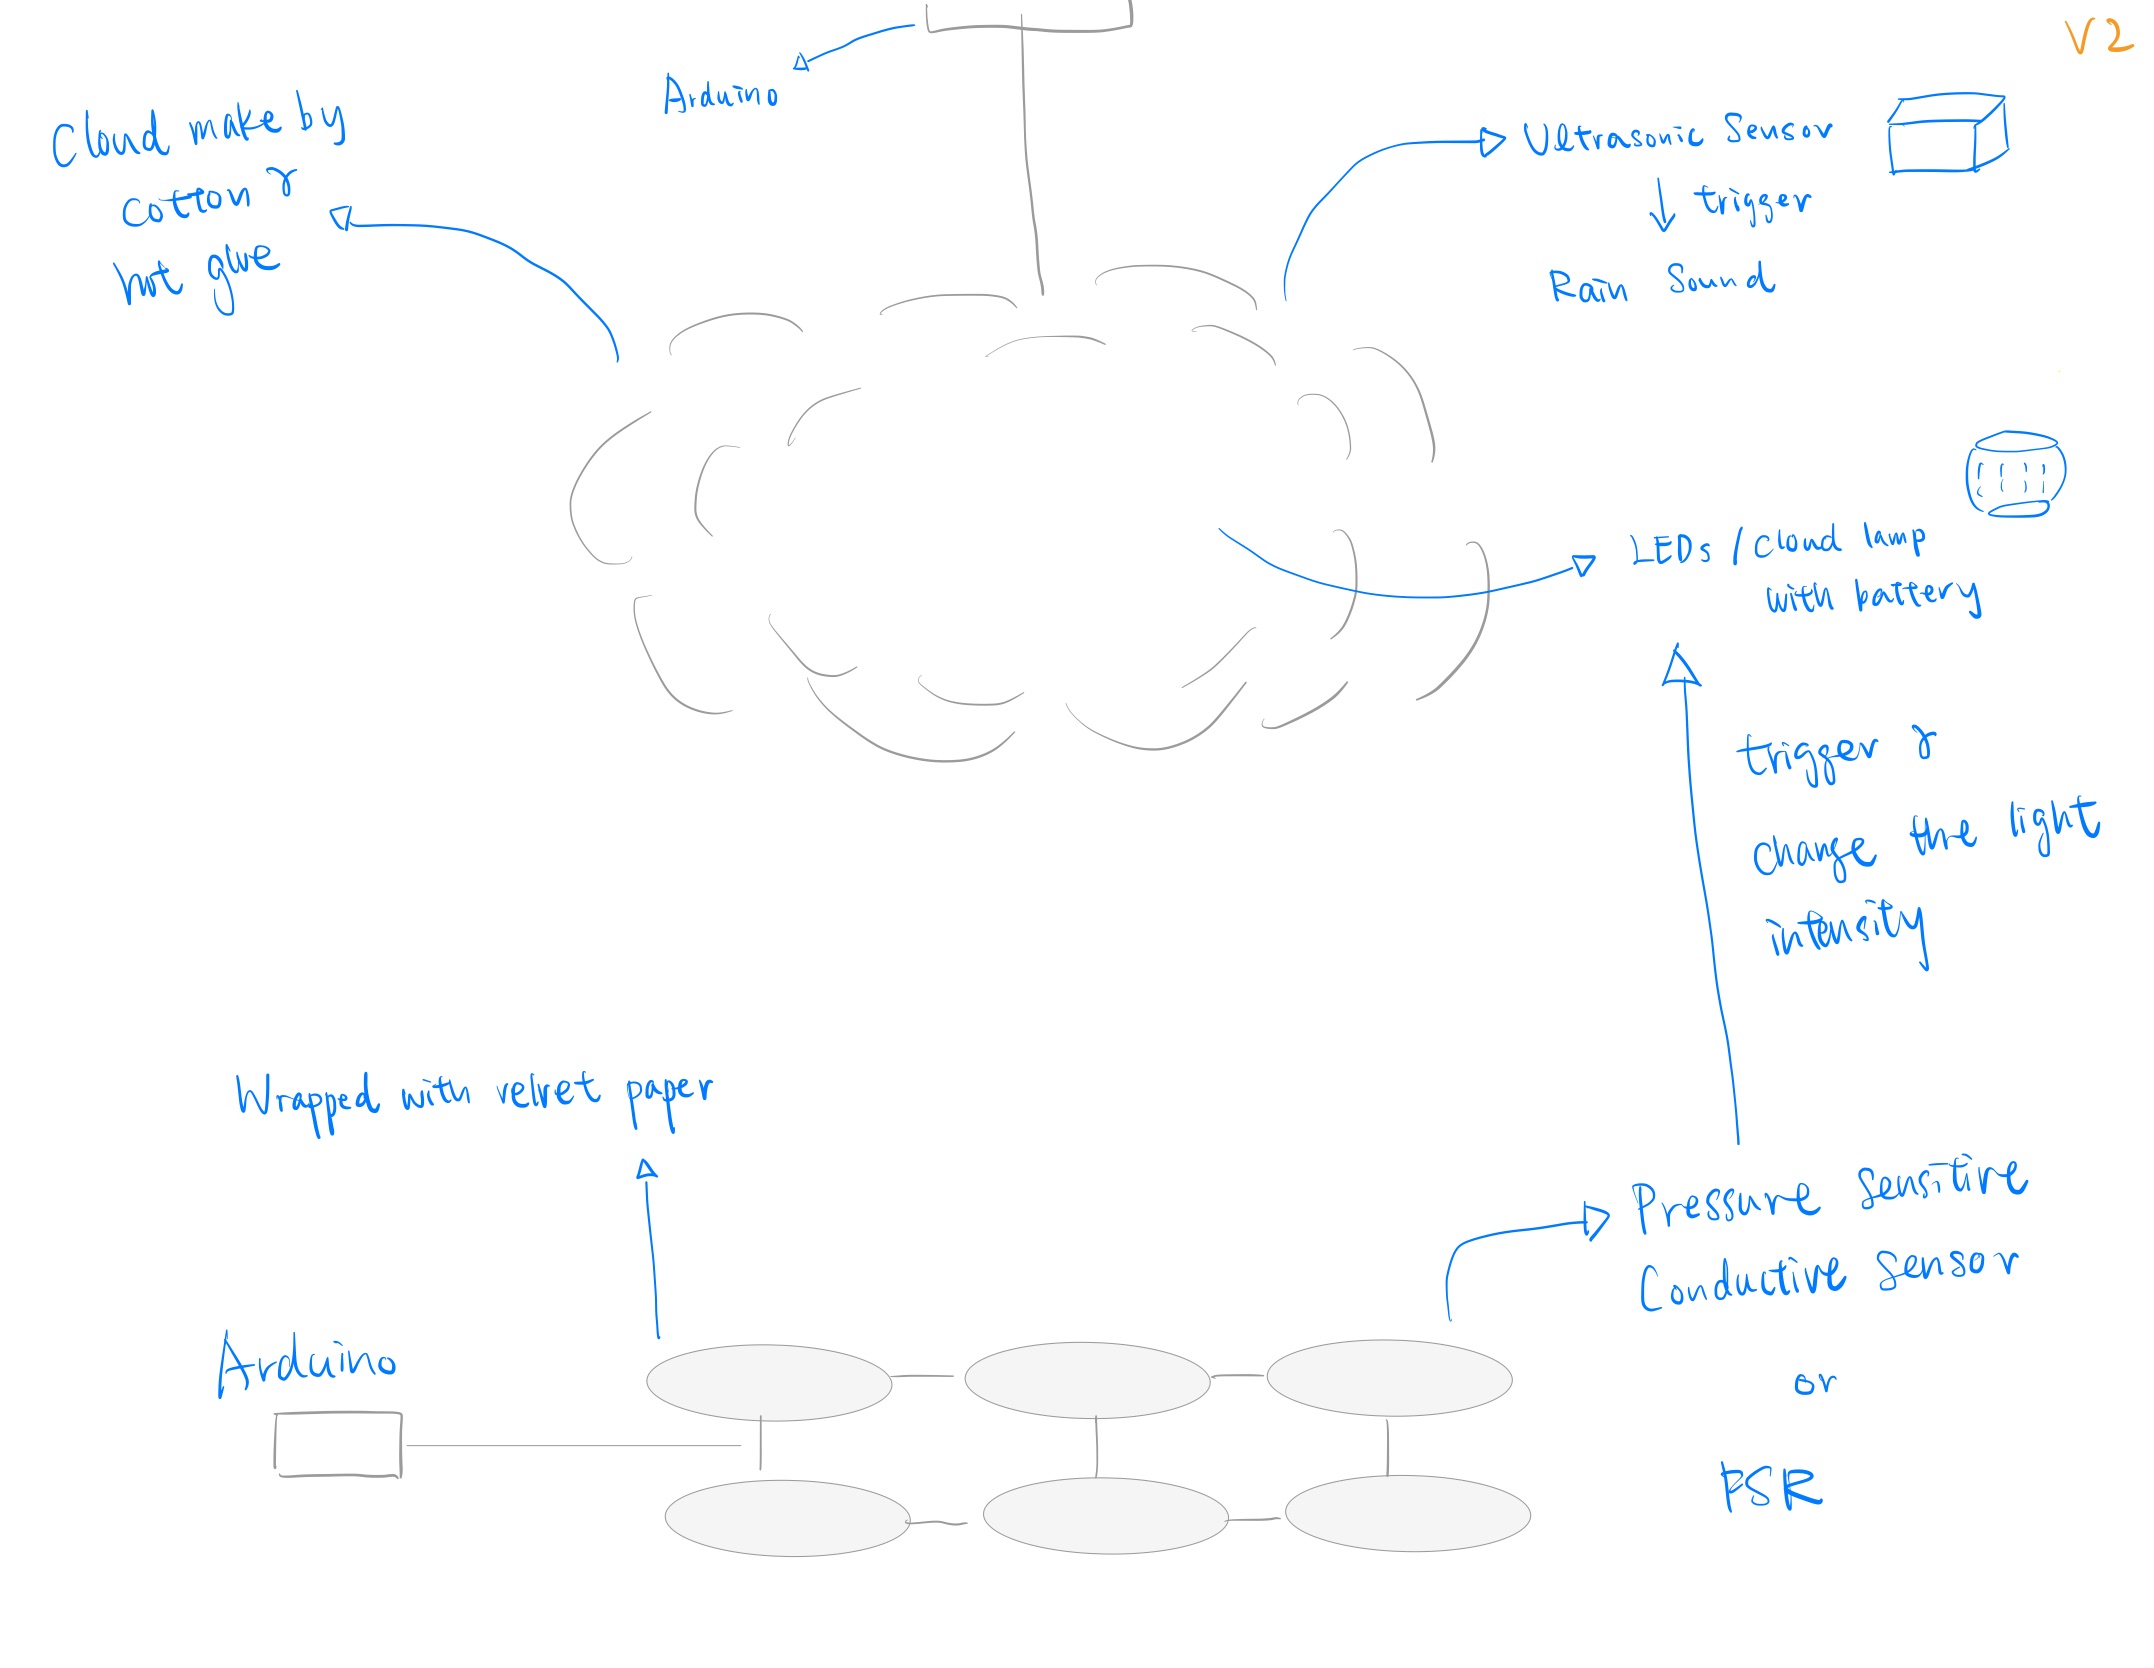 V2
Arduino
Cloud make by
cotton &
hot glue
Ultrasonic Sensor
trigger
Rain Sound
LEDs / Cloud lamp
with battery
trigger &
change the light
intensity
Wrapped with velvet paper
Pressure Sensitive
Conductive Sensor
or
PSR
Arduino